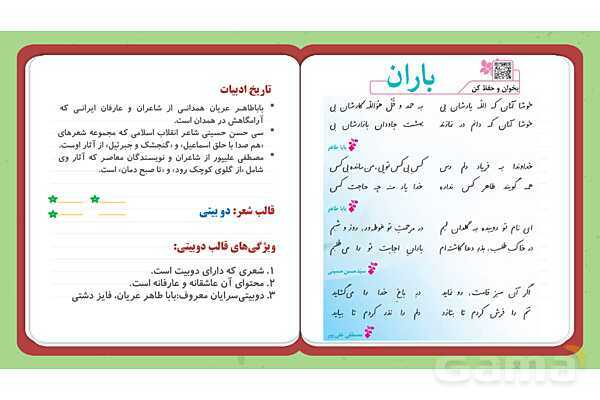 باران
بخوان و حفظ کن
خوشا آنان که الله یارشان بی به حمد و قُل هوالله کارشان بی
خوشا آنان که دائم در نمازند بهشت جاودان بازارشان بی
بابا طاهر
خداوندا به فریاد دلم رس کس بی کس تویی، من مانده بی کس
همه گویند طاهر کس نداره خدا یار منه چه حاجت کس
بابا طاهر
ای نام تو روییده به گلدان لبم در مرحمتِ تو غوطه‌ور، روز و شبم
در خاکِ طلب، بذرِ دعا کاشته‌ام بارانِ اجابت تو را می‌طلبم
سید حسن حسینی
اگر آن سبز قامت، رو نماید درِ باغ خدا را می‌گشاید
تنم را فرش کردم تا بتازد دلم را نذر کردم تا بیاید
مصطفی علی‌پور
تاریخ ادبیات
• باباطاهر عریان همدانی از شاعران و عارفان ایرانی که
آرامگاهش در همدان است.
• سی حسن حسینی شاعر انقلاب اسلامی که مجموعه شعرهای
«هم صدا با حلق اسماعیل» و «گنجشک و جبرئیل» از آثار اوست.
• مصطفی علیپور از شاعران و نویسندگان معاصر که آثار وی
شامل «از گلوی کوچک رود» و «تا صبح دمان» است.
قالب شعر: دو بیتی
ویژگی‌های قالب دوبیتی:
۱. شعری که دارای دوبیت است.
۲. محتوای آن عاشقانه و عارفانه است.
۳. دوبیتی‌سرایان معروف:بابا طاهر عریان، فایز دشتی
Gama